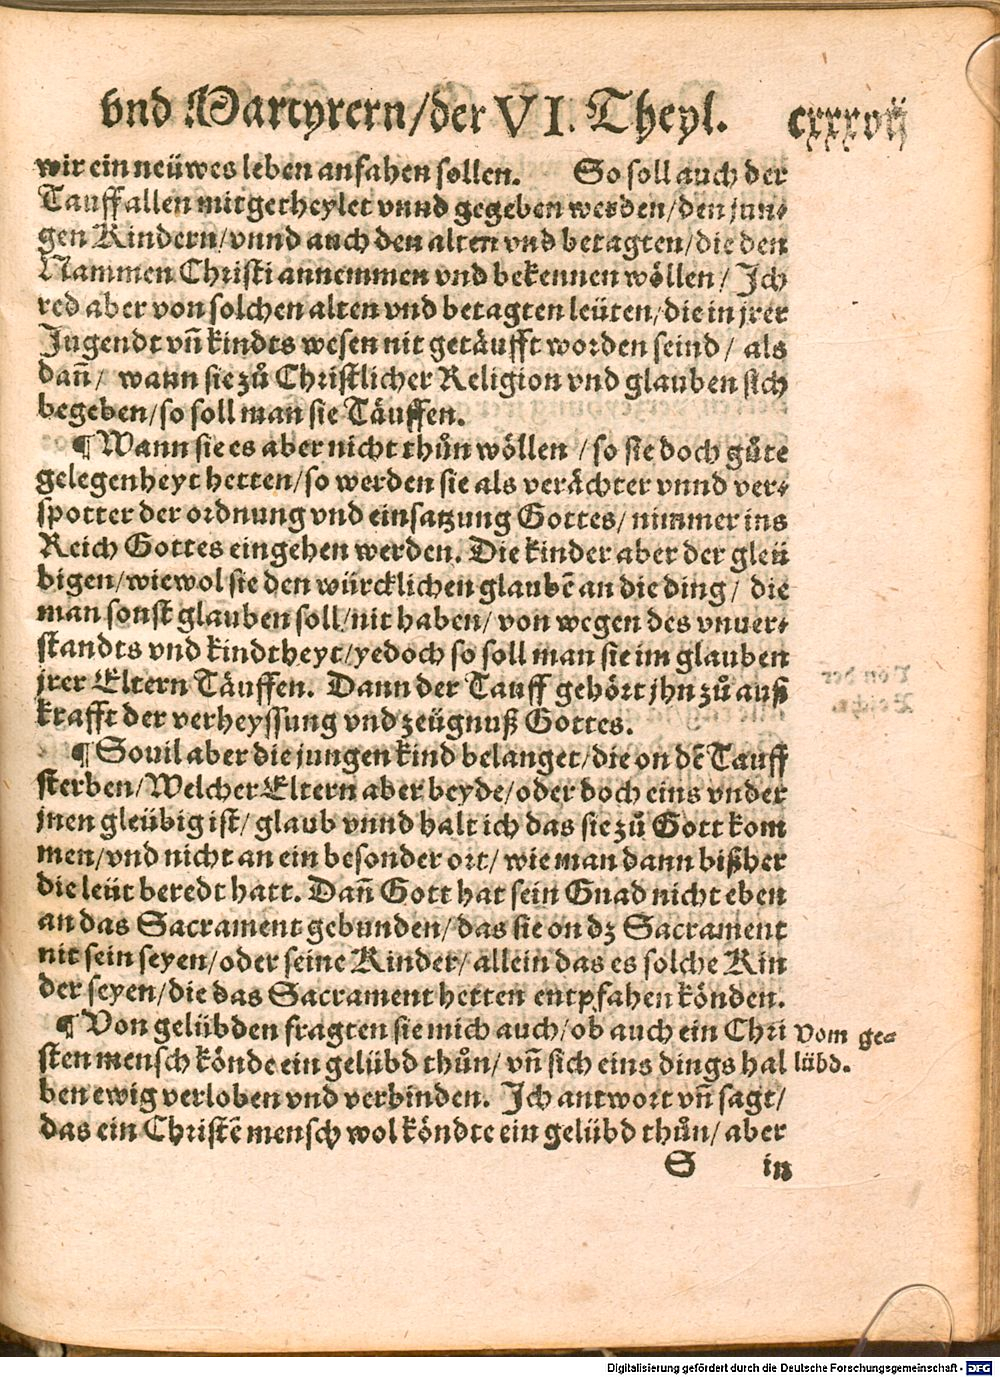 vnd Martyrern/der VI. Theyl. cxxxvij
wir ein neüwes leben anfahen sollen. So soll auch der
Tauff allen mitgetheylet vnnd gegeben werden/den jun⸗
gen Kindern/vnnd auch den alten vnd betagten/die den
Nammen Christi annemmen vnd bekennen wöllen/ Ich
red aber von solchen alten vnd betagten leüten/die in jrer
Jugendt vñ kindts wesen nit getäufft worden seind/ als
dañ/ wann sie zů Christlicher Religion vnd glauben sich
begeben/so soll man sie Täuffen.
¶ Wann sie es aber nicht thůn wöllen /so sie doch gůte
gelegenheyt hetten/so werden sie als verächter vnnd ver⸗
spotter der ordnung vnd einsatzung Gottes/nimmer ins
Reich Gottes eingehen werden. Die kinder aber der gleü
bigen/wiewol sie den würcklichen glaubē an die ding/ die
man sonst glauben soll/nit haben/ von wegen des vnuer⸗
standts vnd kindtheyt/yedoch so soll man sie im glauben
jrer Eltern Täuffen. Dann der Tauff gehört jhn zů auß
krafft der verheyssung vnd zeügnuß Gottes.
¶ Souil aber die jungen kind belanget/die on dē Tauff
sterben/Welcher Eltern aber beyde/oder doch eins vnder
jnen gleübig ist/ glaub vnnd halt ich das sie zů Gott kom
men/vnd nicht an ein besonder ort/ wie man dann bißher
die leüt beredt hatt. Dañ Gott hat sein Gnad nicht eben
an das Sacrament gebunden/das sie on dz Sacrament
nit sein seyen/oder seine Kinder/allein das es solche Kin
der seyen/die das Sacrament hetten entpfahen könden.
¶ Von gelübden fragten sie mich auch/ob auch ein Chri
sten mensch könde ein gelübd thůn/ vñ sich eins dings hal
ben ewig verloben vnd verbinden. Ich antwort vñ sagt/
das ein Christē mensch wol köndte ein gelübd thůn/ aber
Vom ge⸗
lübd.
S in
Digitalisierung gefördert durch die Deutsche Forschungsgemeinschaft - DFG